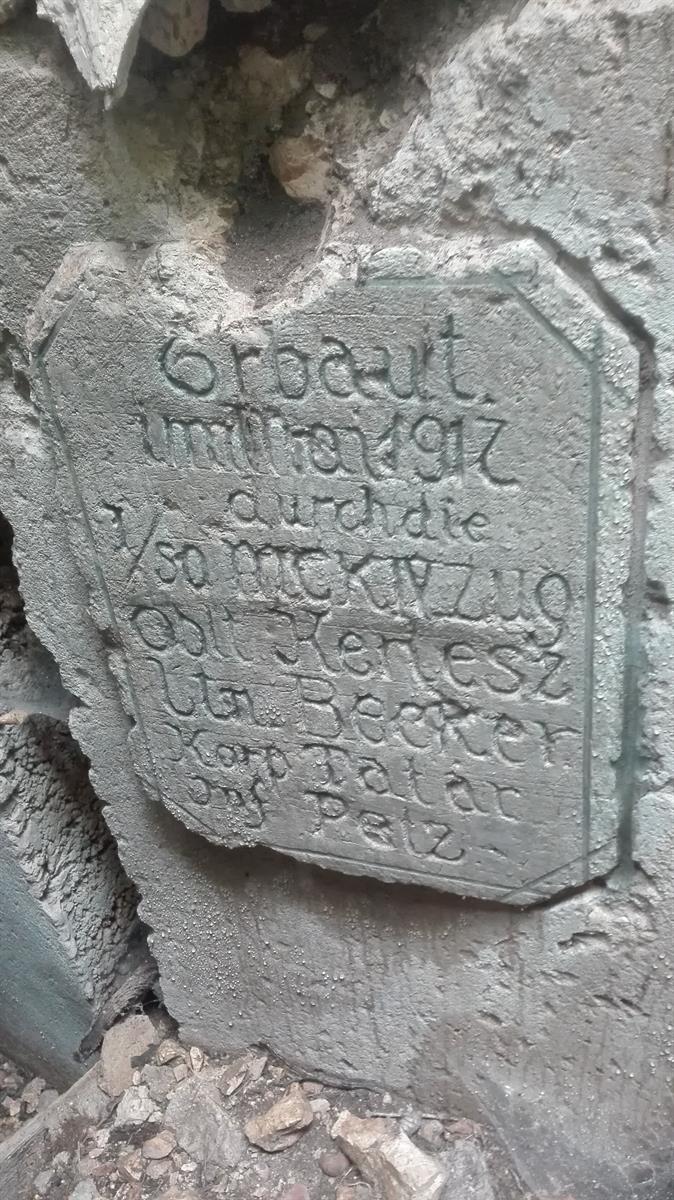 Erbaut.
im Mai 1917
durch die
1/50 MGK IV Zug
Oblt. Kertesz
Ltn. Becker
Korp Tatar
Inf Pelz